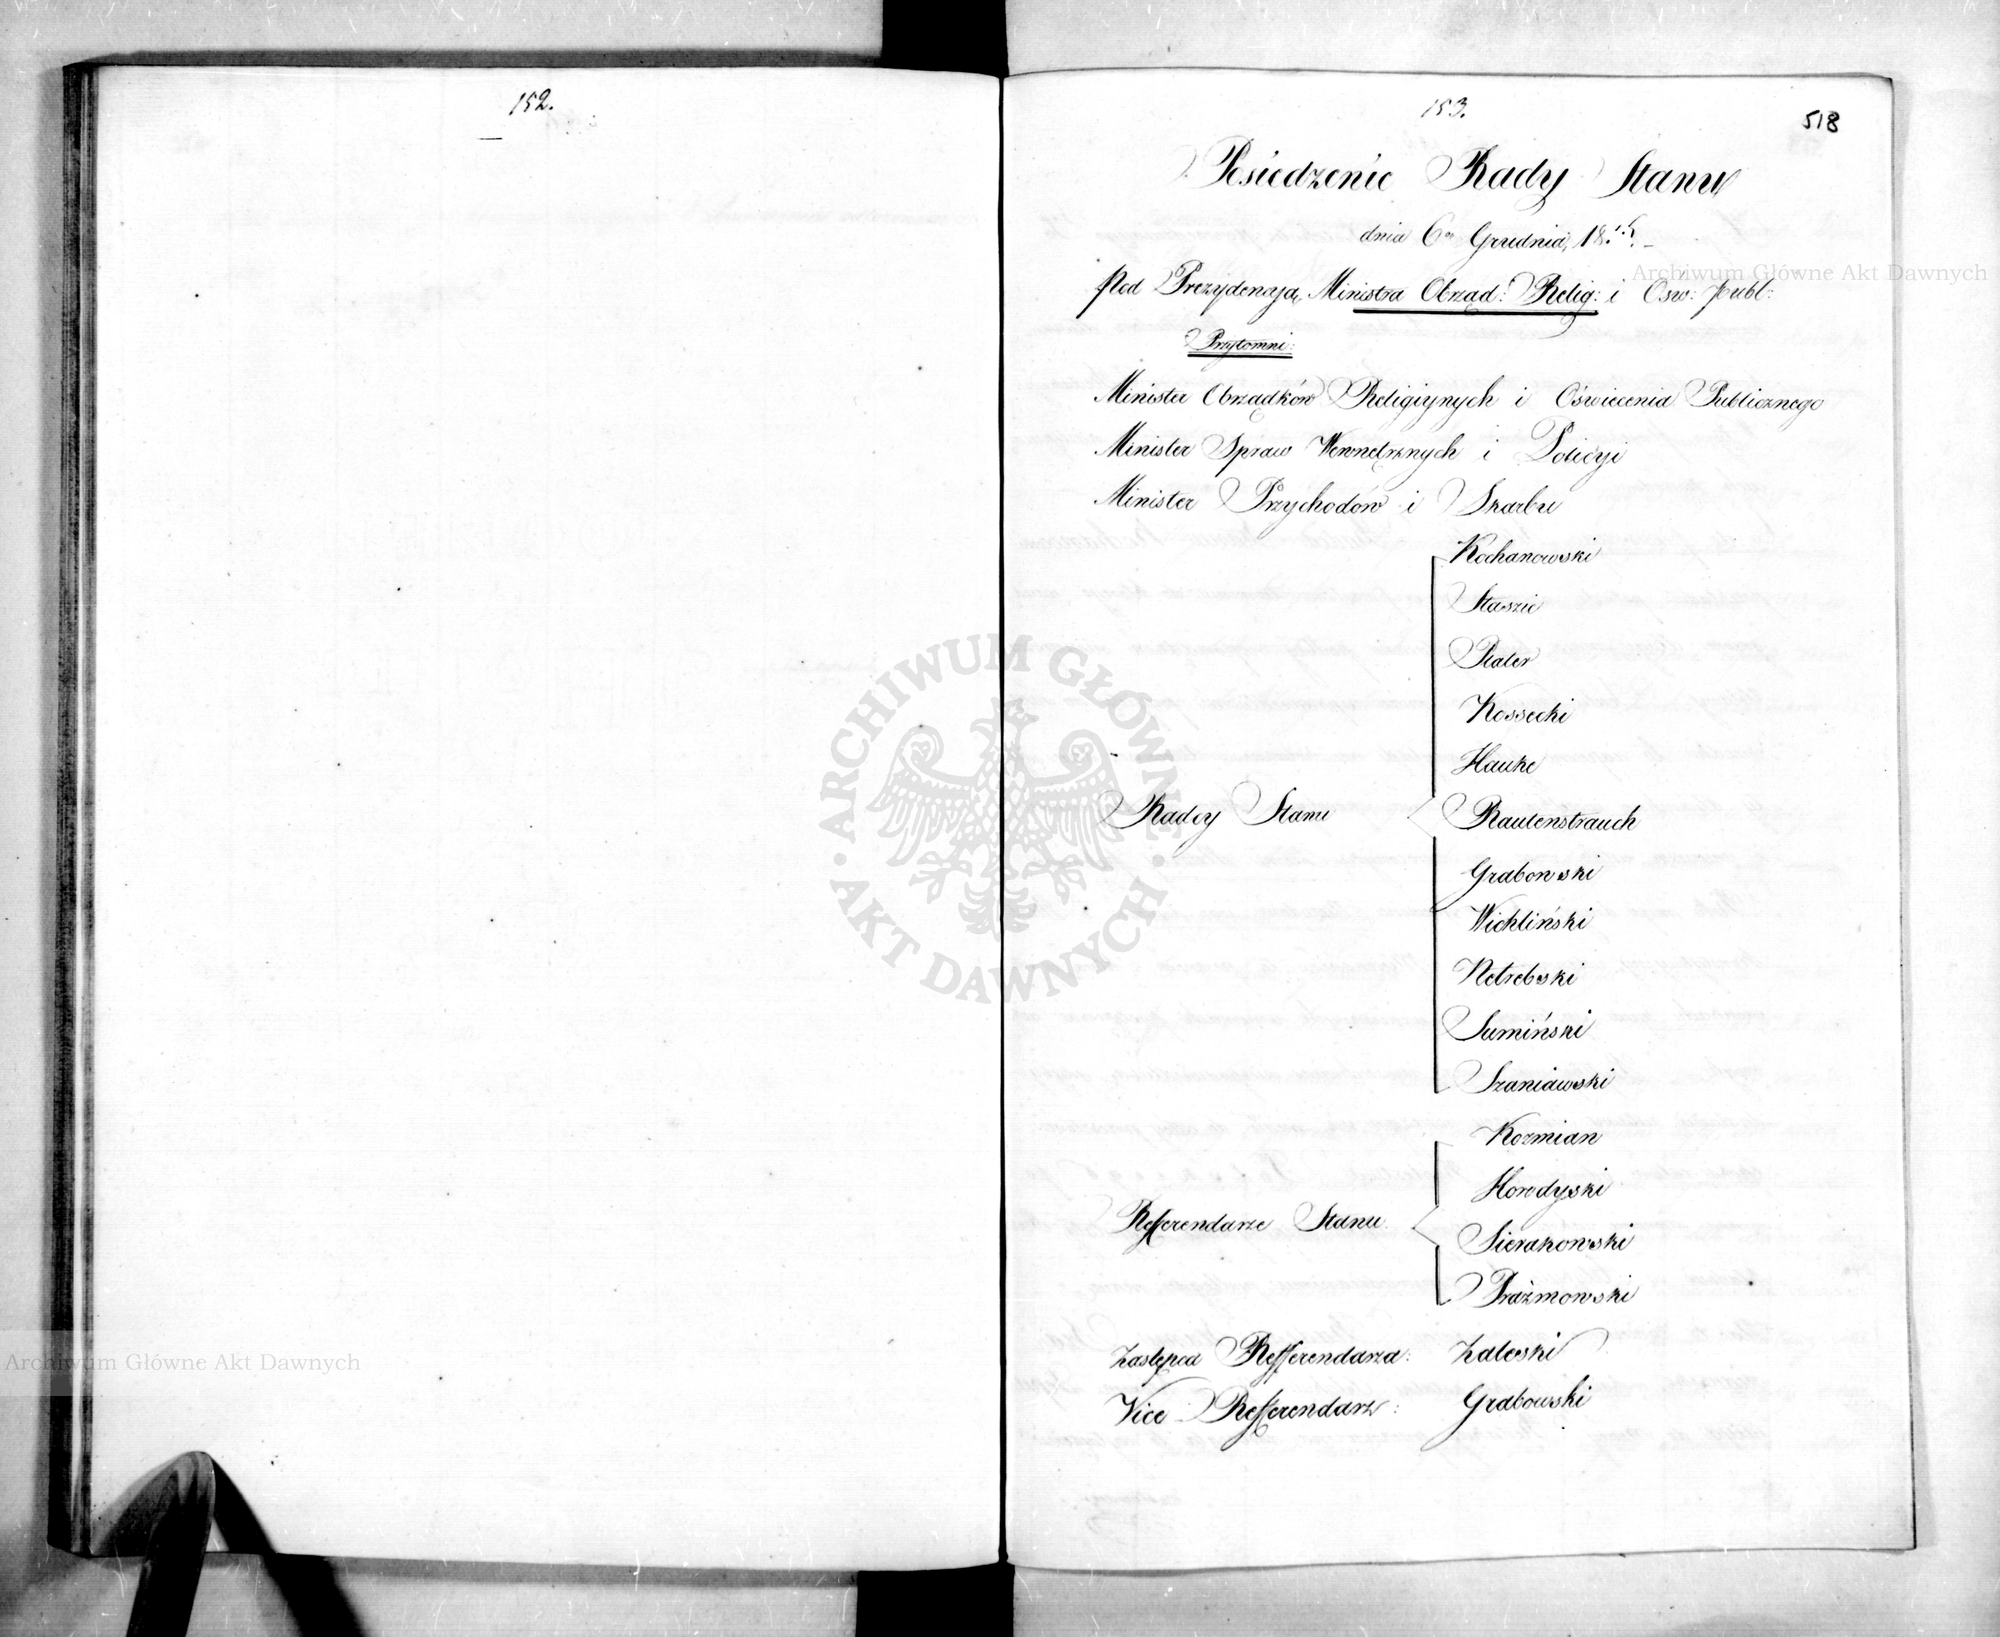 152.
153.
518
Posiedzenie Rady Stanu
dnia 6go Grudnia, 18
pod Prezydencyą, Ministra Obrząd: Relig: i Ośw: publ:
Przytomni:
Minister Obrządków Religiynych i Oświecenia Publicznego
Minister Spraw Wewnętrznych i Policyi
Minister Przychodów i Skarbu
Kochanowski
Staszic
Plater
Kossecki
Hauke
Radcy Stanu
Rautenstrauch
Grabowski
Wichliński
Netrebski
Sumiński
Szaniawski
Kozmian
Horodyski
Refferendarze Stanu
Sierakowski
Prażmowski
Zastępca Refferendarza: Zaleski
Vice-Refferendarz: Grabowski
Archiwum Główne Akt Dawnych
ARCHIWUM GŁÓWNE · AKT DAWNYCH ·
Archiwum Główne Akt Dawnych